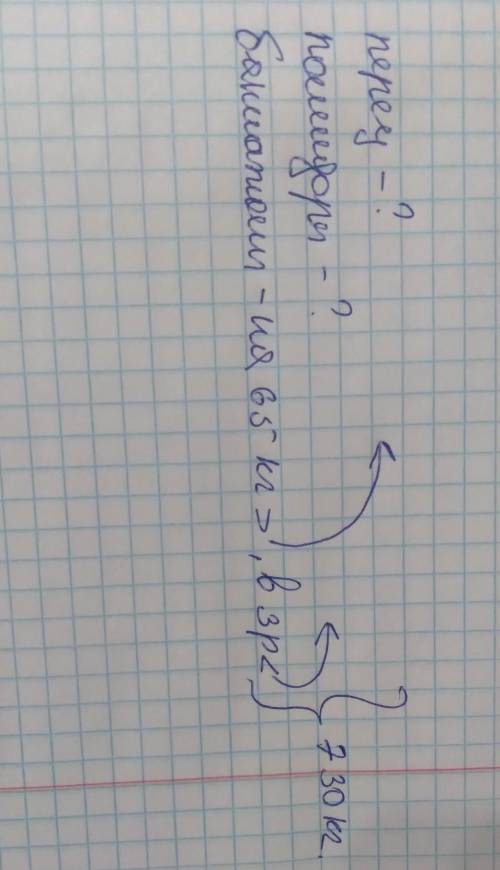 перец - ?
помидоры - ?
баклажаны - на 65 кг >, в 3р <
730 кг.